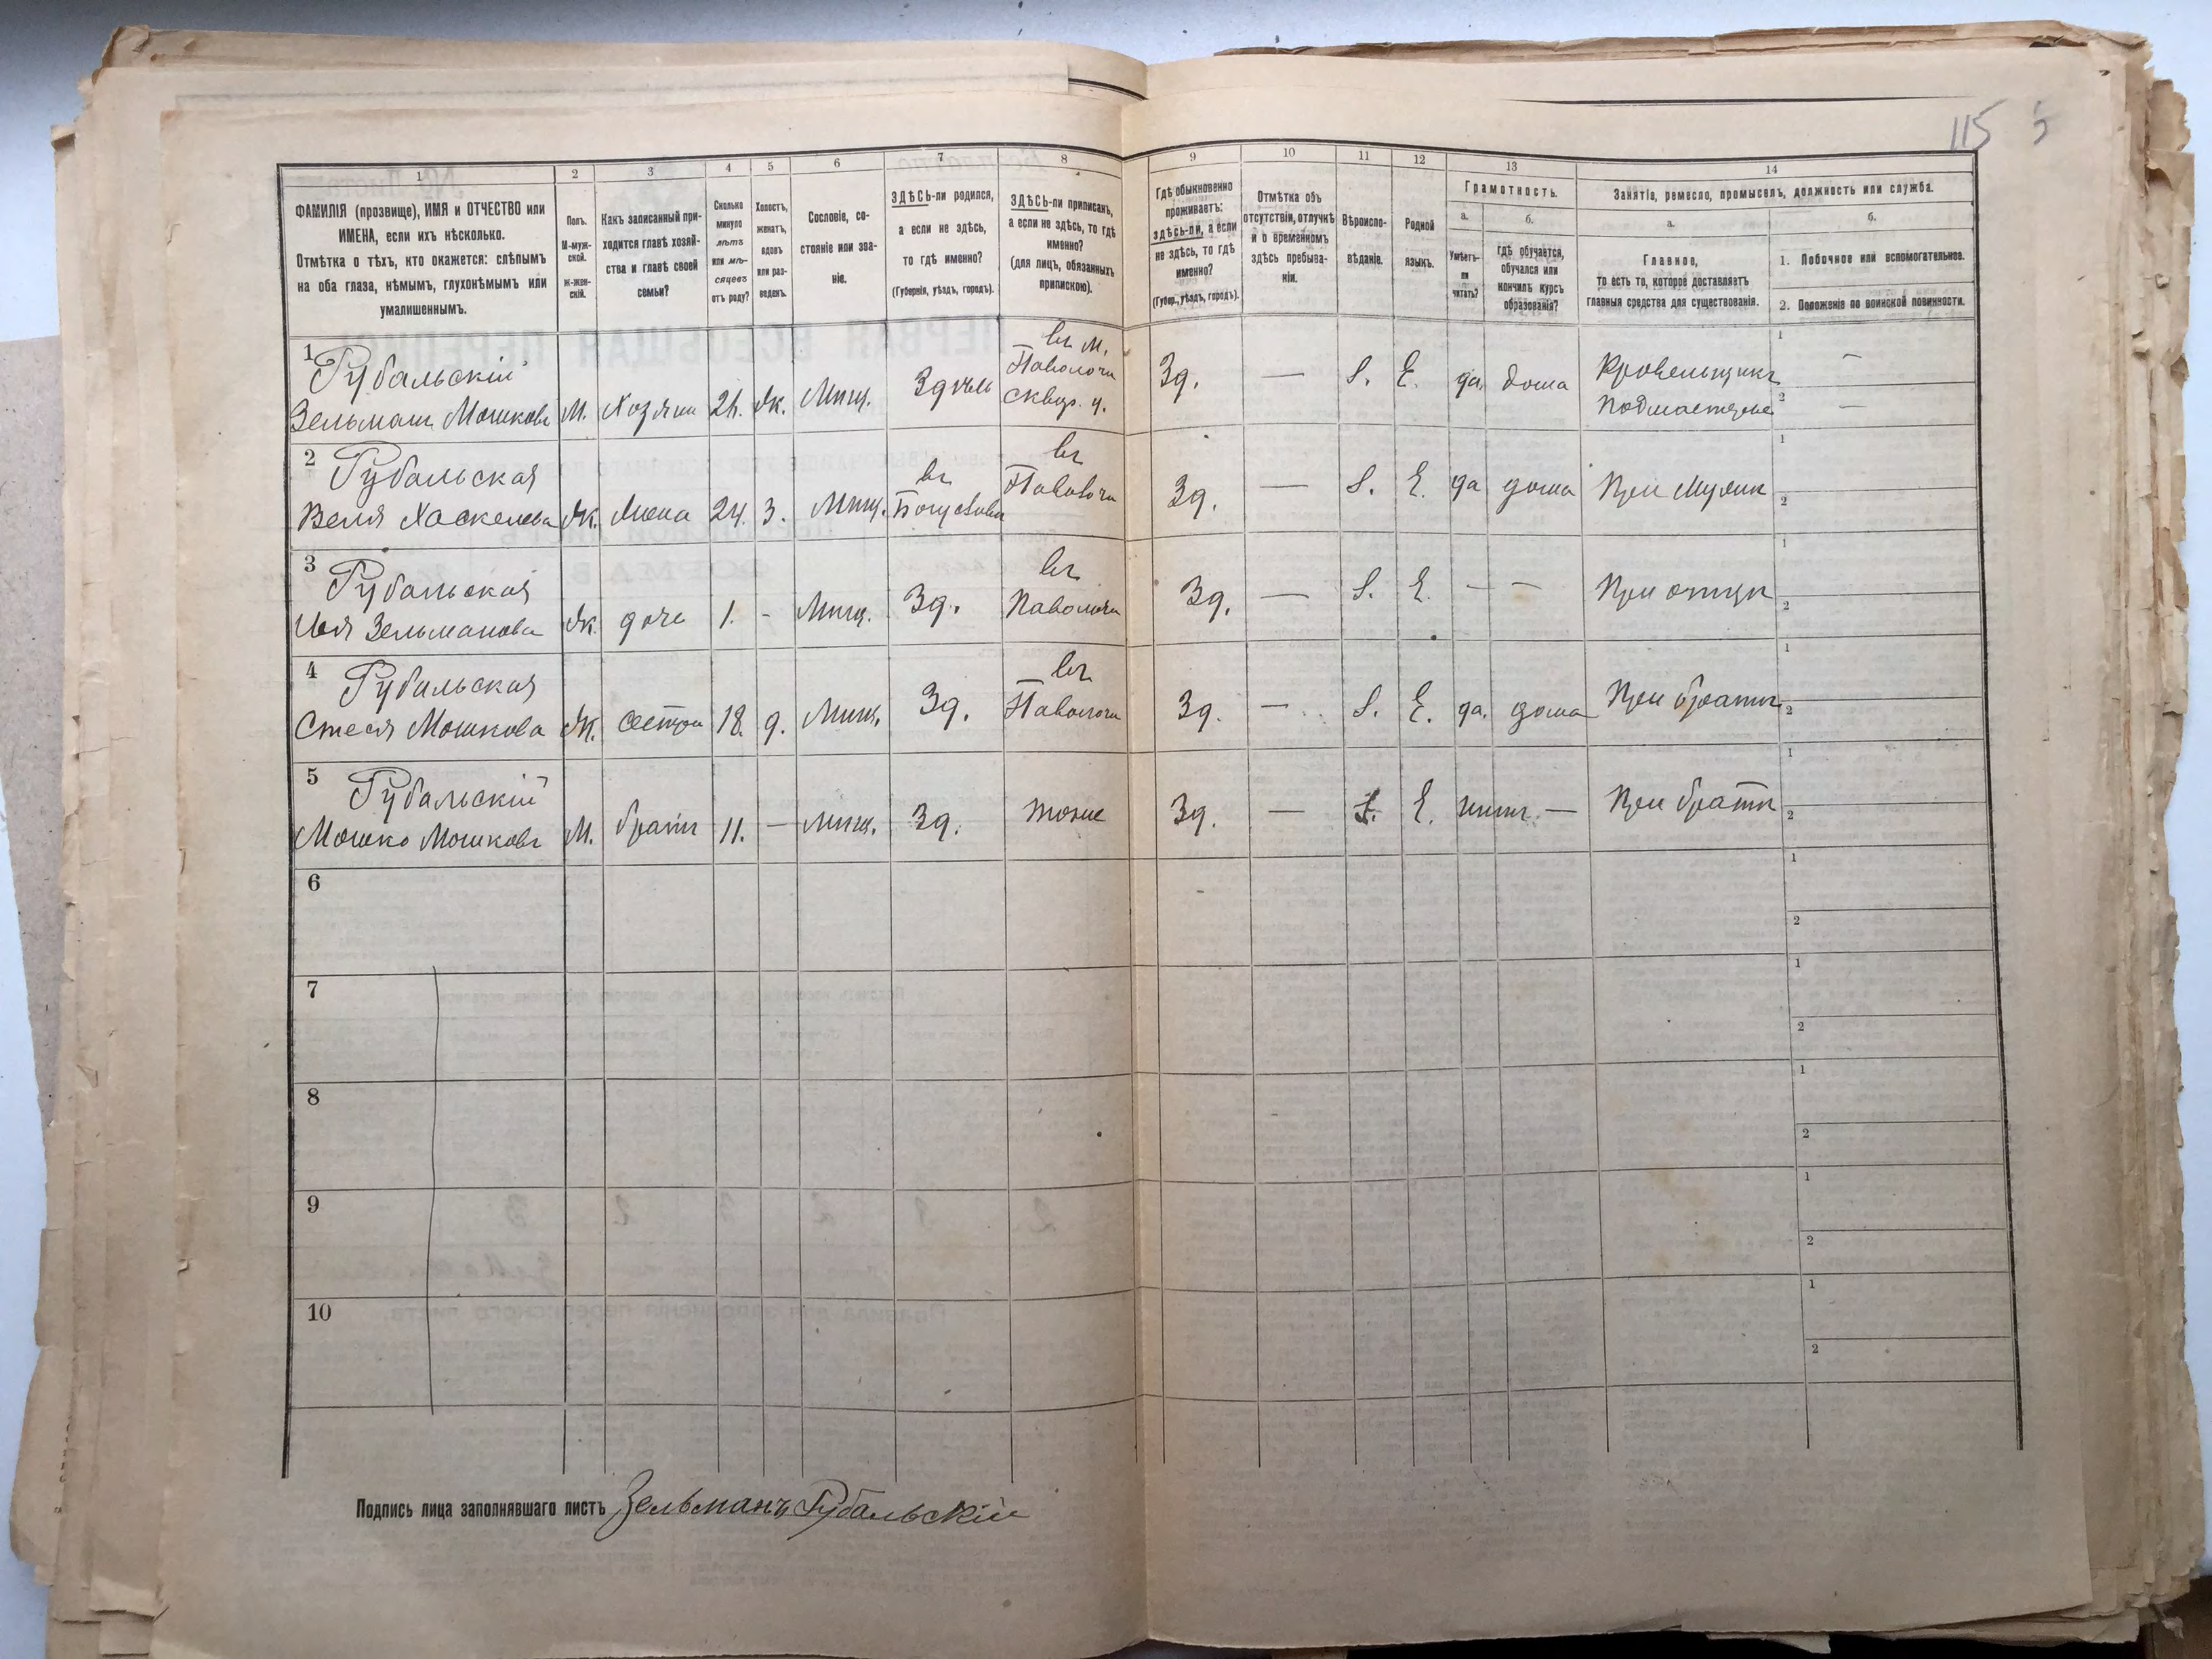 115
1
2
3
4
5
6
7
8
9
10
11
12
13
14
ФАМИЛІЯ (прозвище), ИМЯ и ОТЧЕСТВО или
ИМЕНА, если ихъ нѣсколько.
Отмѣтка о тѣхъ, кто окажется: слѣпымъ
на оба глаза, нѣмымъ, глухонѣмымъ или
умалишеннымъ.
Полъ.
М-муж-
ской.
ж-жен-
скій.
Какъ записанный при-
ходится главѣ хозяй-
ства и главѣ своей
семьи?
Сколько
минуло
лѣтъ
или мѣ-
сяцевъ
отъ роду?
Холостъ,
женатъ,
вдовъ
или раз-
веденъ.
Сословіе, со-
стояніе или зва-
ніе.
ЗДѢСЬ-ли родился,
а если не здѣсь,
то гдѣ именно?
(Губернія, уѣздъ, городъ).
ЗДѢСЬ-ли приписанъ,
а если не здѣсь, то гдѣ
именно?
(для лицъ, обязанныхъ
припискою).
Гдѣ обыкновенно
проживаетъ:
здѣсь-ли, а если
не здѣсь, то гдѣ
именно?
(Губер., уѣздъ, городъ).
Отмѣтка объ
отсутствіи, отлучкѣ
и о временномъ
здѣсь пребыва-
ніи.
Вѣроиспо-
вѣданіе.
Родной
языкъ.
Грамотность.
а.
Умѣетъ-
ли
читать?
б.
гдѣ обучается,
обучался или
кончилъ курсъ
образованія?
Занятія, ремесло, промыселъ, должность или служба.
а.
Главное,
то есть то, которое доставляетъ
главныя средства для существованія.
б.
1. Побочное или вспомогательное.
2. Положеніе по воинской повинности.
1
Рубальскій
Зельманъ Мошковъ
М. Хозяин ж. Мѣщ.
въ м.
Паволочи
Сквир. у.
Зд. — І. Е. да дома
Кровельщикъ
Подмастерье
1 —
2 —
2
Рубальская
Веля Хаскелева
Ж. Жена 24. З. Мѣщ.
въ
въ
Паволочи
Зд. — І. Е. да дома При мужѣ
1
2
3
Рубальская
Зельманова
Ж. дочь 1. - Мѣщ. Зд.
въ
Паволочи
Зд. — І. Е. — — При отцѣ
1
2
4
Рубальская
Стеся Мошкова
Ж. сестра 18. д. Мѣщ. Зд.
въ
Паволочи
Зд. — І. Е. да. дома При братѣ
1
2
5
Рубальскій
Мошко Мошковъ
М. братъ 11. — Мѣщ. Зд. тоже
Зд. — І. Е. нѣтъ — При братѣ
1
2
6
1
2
7
1
2
8
1
2
9
1
2
10
1
2
Подпись лица заполнявшаго листъ Зельманъ Рубальскій